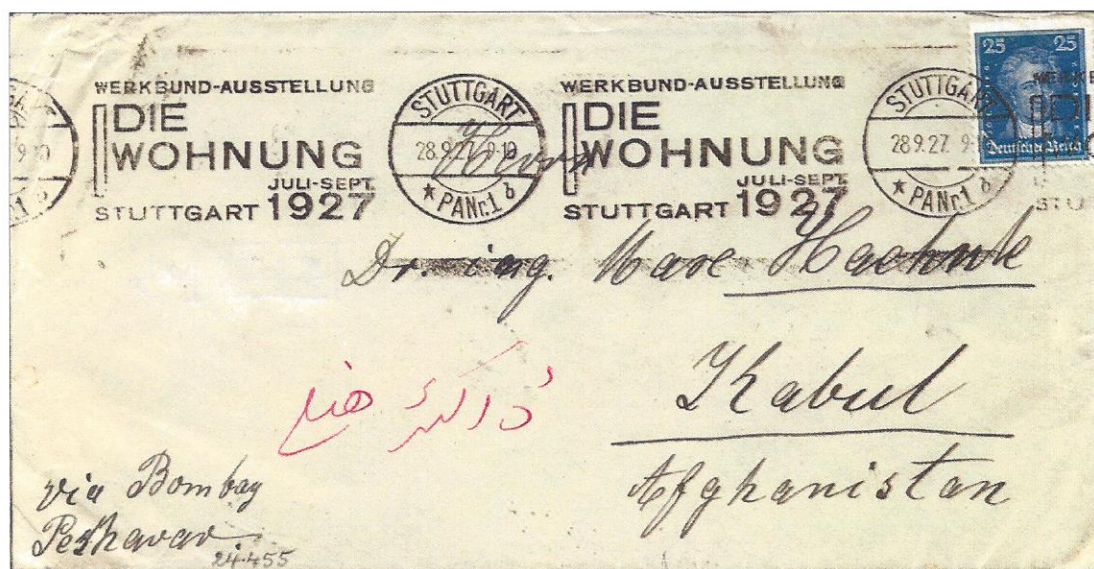 WERKBUND-AUSSTELLUNG
DIE
WOHNUNG
JULI-SEPT.
STUTTGART 1927
STUTTGART
28.9.27. 9-10
* PANr.1 b
WERKBUND-AUSSTELLUNG
DIE
WOHNUNG
JULI-SEPT.
STUTTGART 1927
STUTTGART
28.9.27. 9-
* PANr.1 b
25 25
Deutsches Reich
Herrn
Dr. ing. Marc
Kabul
Afghanistan
via Bombay
Peshavar
24.455